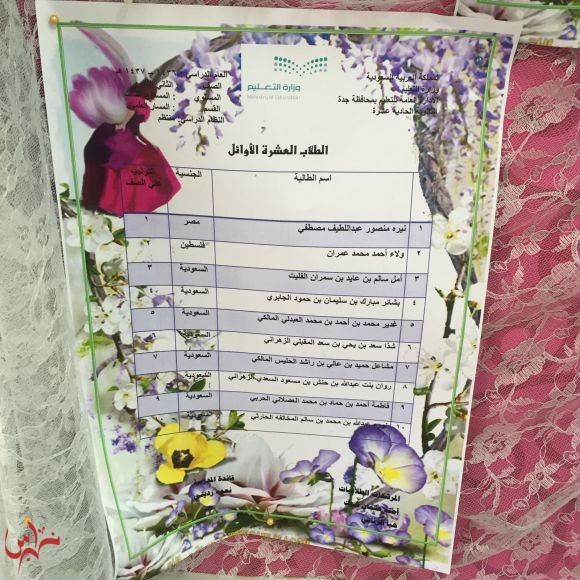 المملكة العربية السعودية
وزارة التعليم
الإدارة العامة للتعليم بمحافظة جدة
الثانوية الحادية عشرة
وزارة التعليم
Ministry of Education
العام الدراسي: ١٤٣٦ - ١٤٣٧ هـ
الصف : الثاني
المستوى
القسم : المسار العلمي
النظام الدراسي: منتظم
الطلاب العشرة الأوائل
اسم الطالبة الجنسية الترتيب على الصف
١ نيره منصور عبداللطيف مصطفي مصر ١
٢ ولاء أحمد محمد عمران فلسطين ٢
٣ أمل سالم بن عايد بن سمران القليت السعودية ٣
٤ بشائر مبارك بن سليمان بن حمود الجابري السعودية ٤
٥ غدير محمد بن أحمد بن محمد العبدلي المالكي السعودية ٥
٦ شذا سعد بن يحي بن سعد المقبلي الزهراني السعودية ٦
٧ مشاعل حميد بن عالي بن راشد الحليس المالكي السعودية ٧
٨ روان بنت عبدالله بن حنش بن مسعود السعدي الزهراني السعودية
٩ فاطمة أحمد بن حماد بن محمد العصلاني الحربي السعودية ٩
١٠ عبدالله بن محمد بن سالم المخالفه الحارثي
المرشدات الطلابيات
هيا الزبياني
قائدة المدرسة